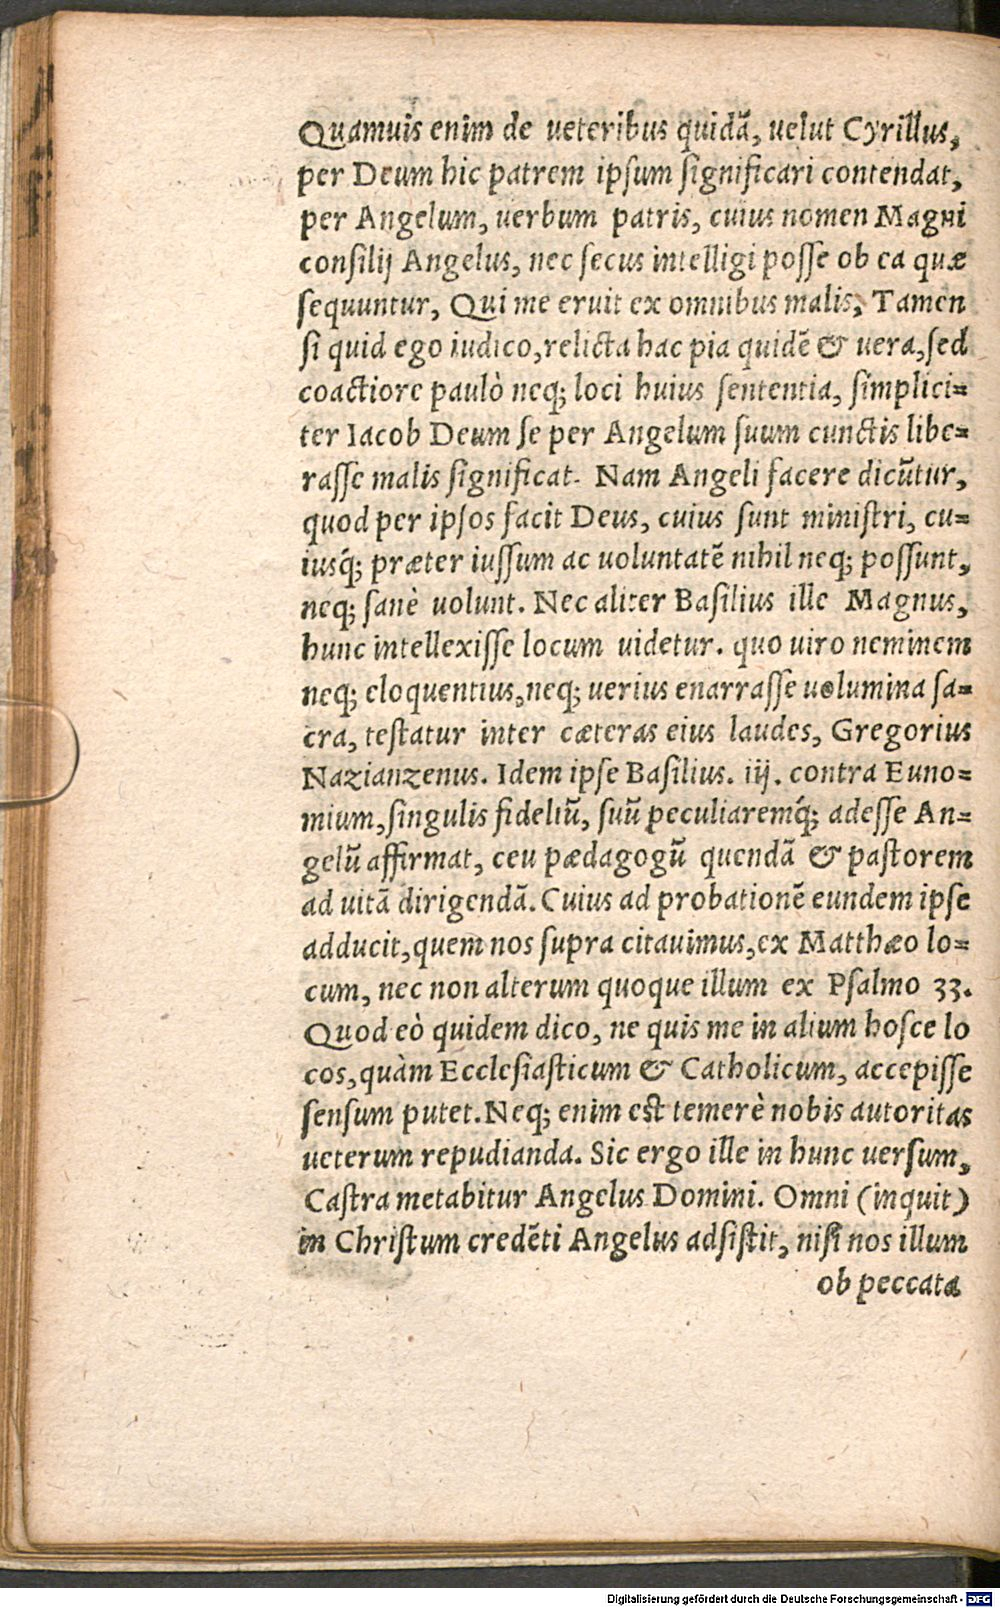 Quamuis enim de ueteribus quidã, uelut Cyrillus,
per Deum hic patrem ipsum significari contendat,
per Angelum, uerbum patris, cuius nomen Magni
consilij Angelus, nec secus intelligi posse ob ea quæ
sequuntur, Qui me eruit ex omnibus malis, Tamen
si quid ego iudico, relicta hac pia quidẽ & uera, sed
coactiore paulò neq; loci huius sententia, simplici=
ter Iacob Deum se per Angelum suum cunctis libe=
rasse malis significat. Nam Angeli facere dicũtur,
quod per ipsos facit Deus, cuius sunt ministri, cu=
iusq́; præter iussum ac uoluntatẽ nihil neq; possunt,
neq; sanè uolunt. Nec aliter Basilius ille Magnus,
hunc intellexisse locum uidetur. quo uiro neminem
neq; eloquentius, neq; uerius enarrasse uolumina sa=
cra, testatur inter cæteras eius laudes, Gregorius
Nazianzenus. Idem ipse Basilius. iij. contra Euno=
mium, singulis fideliũ, suũ peculiaremq́; adesse An=
gelũ affirmat, ceu pædagogũ quendã & pastorem
ad uitã dirigendã. Cuius ad probationẽ eundem ipse
adducit, quem nos supra citauimus, ex Matthæo lo=
cum, nec non alterum quoque illum ex Psalmo 33.
Quod eò quidem dico, ne quis me in alium hosce lo
cos, quàm Ecclesiasticum & Catholicum, accepisse
sensum putet. Neq; enim est temerè nobis autoritas
ueterum repudianda. Sic ergo ille in hunc uersum,
Castra metabitur Angelus Domini. Omni (inquit)
in Christum credẽti Angelus adsistit, nisi nos illum
ob peccata
Digitalisierung gefördert durch die Deutsche Forschungsgemeinschaft - DFG